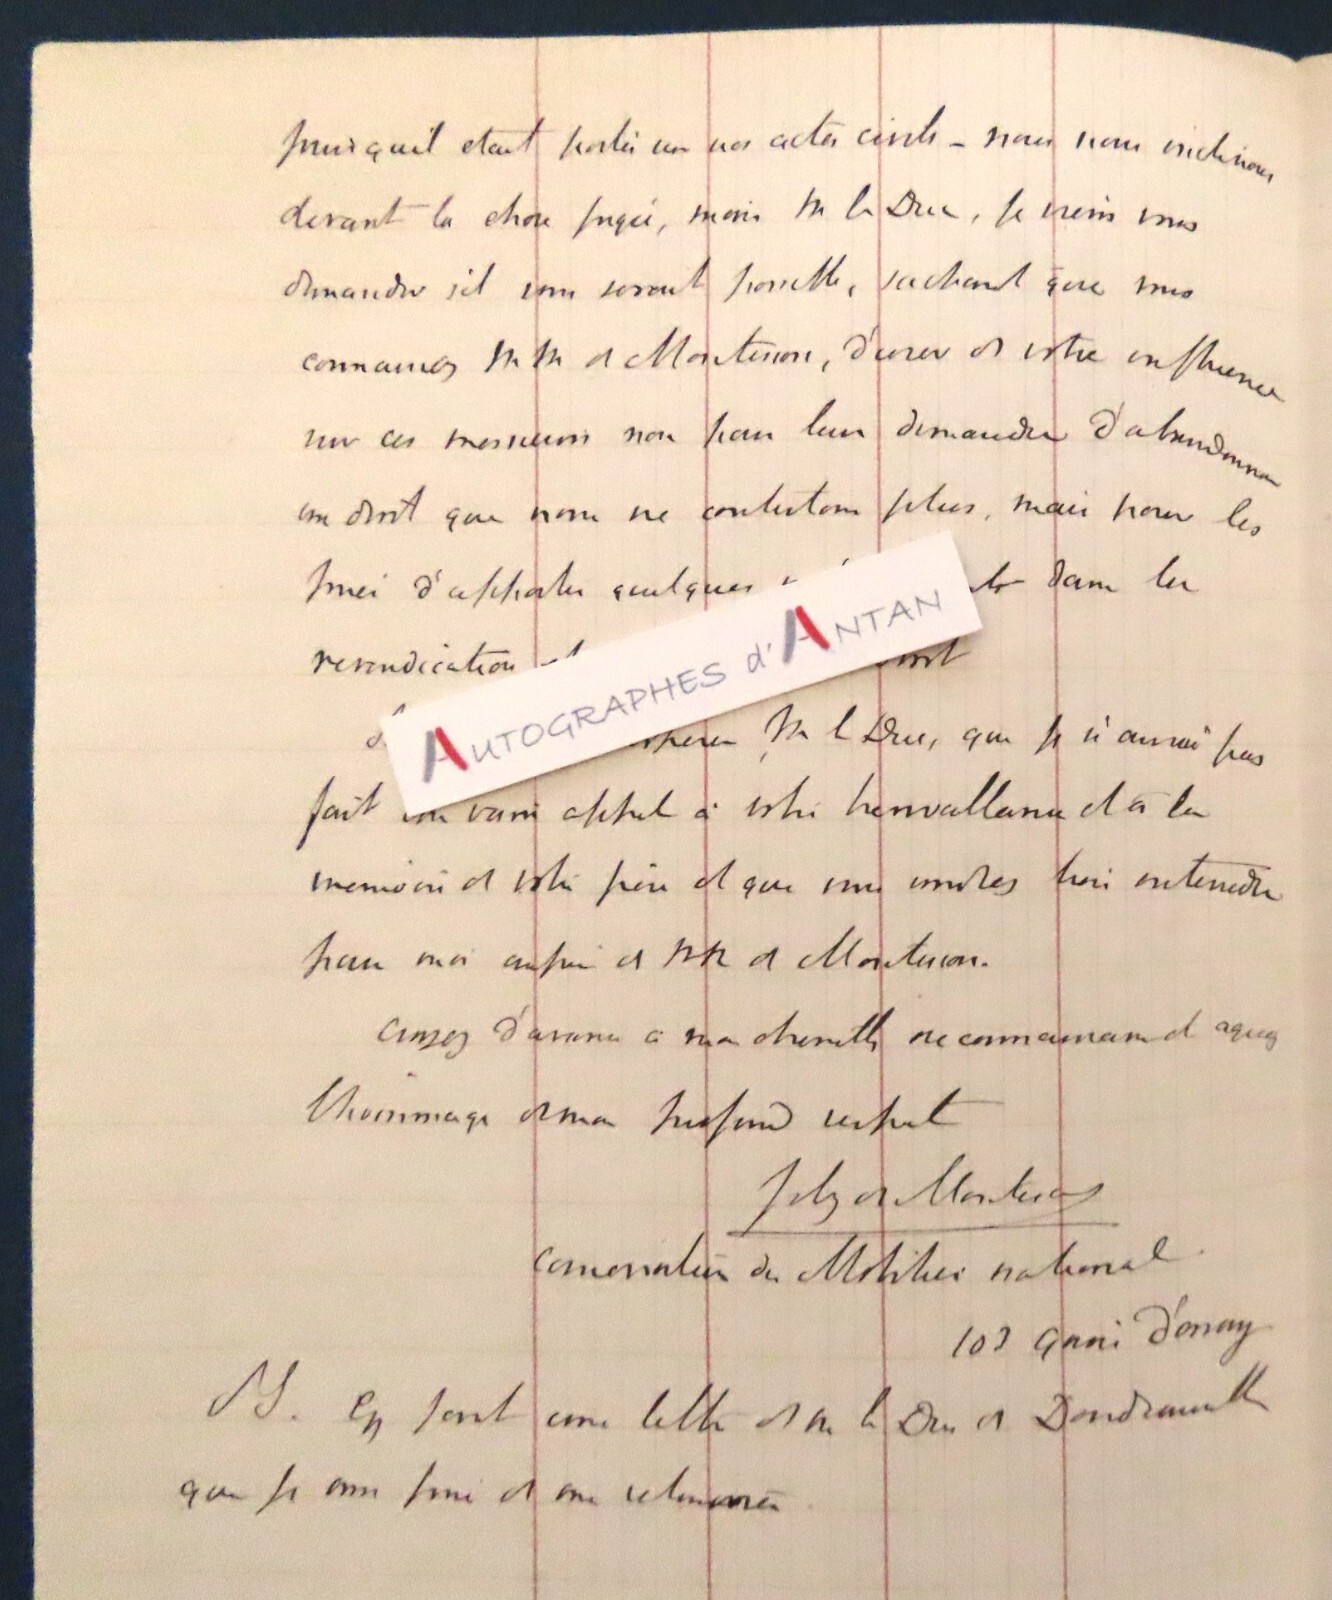 puisqu'il etait porté sur nos actes civils - nous nous inclinons
devant la chose jugée, mais M le Duc, je viens vous
demander s'il vous serait possible, sachant que vous
connaissez MM de Montesson, d'user de votre influence
sur ces messieurs non pour leur demander d'abandonner
un droit que nous ne contestons plus, mais pour les
prier d'apporter quelques dans la
revendication
M le Duc, que je n'aurai pas
fait un vain appel à votre bienveillance et à la
memoire de votre père et que vous voudrez bien intervenir
pour moi auprès de MM de Montesson.
Croyez d'avance à ma eternelle reconnaissance et agréez
l'hommage de mon profond respect
Joly de Montesson
Conservateur du Mobilier national
103 quai d'orsay
PS. Ci joint une lettre de M le Duc de Doudeauville
que je vous prie de me retourner
AUTOGRAPHES d'ANTAN